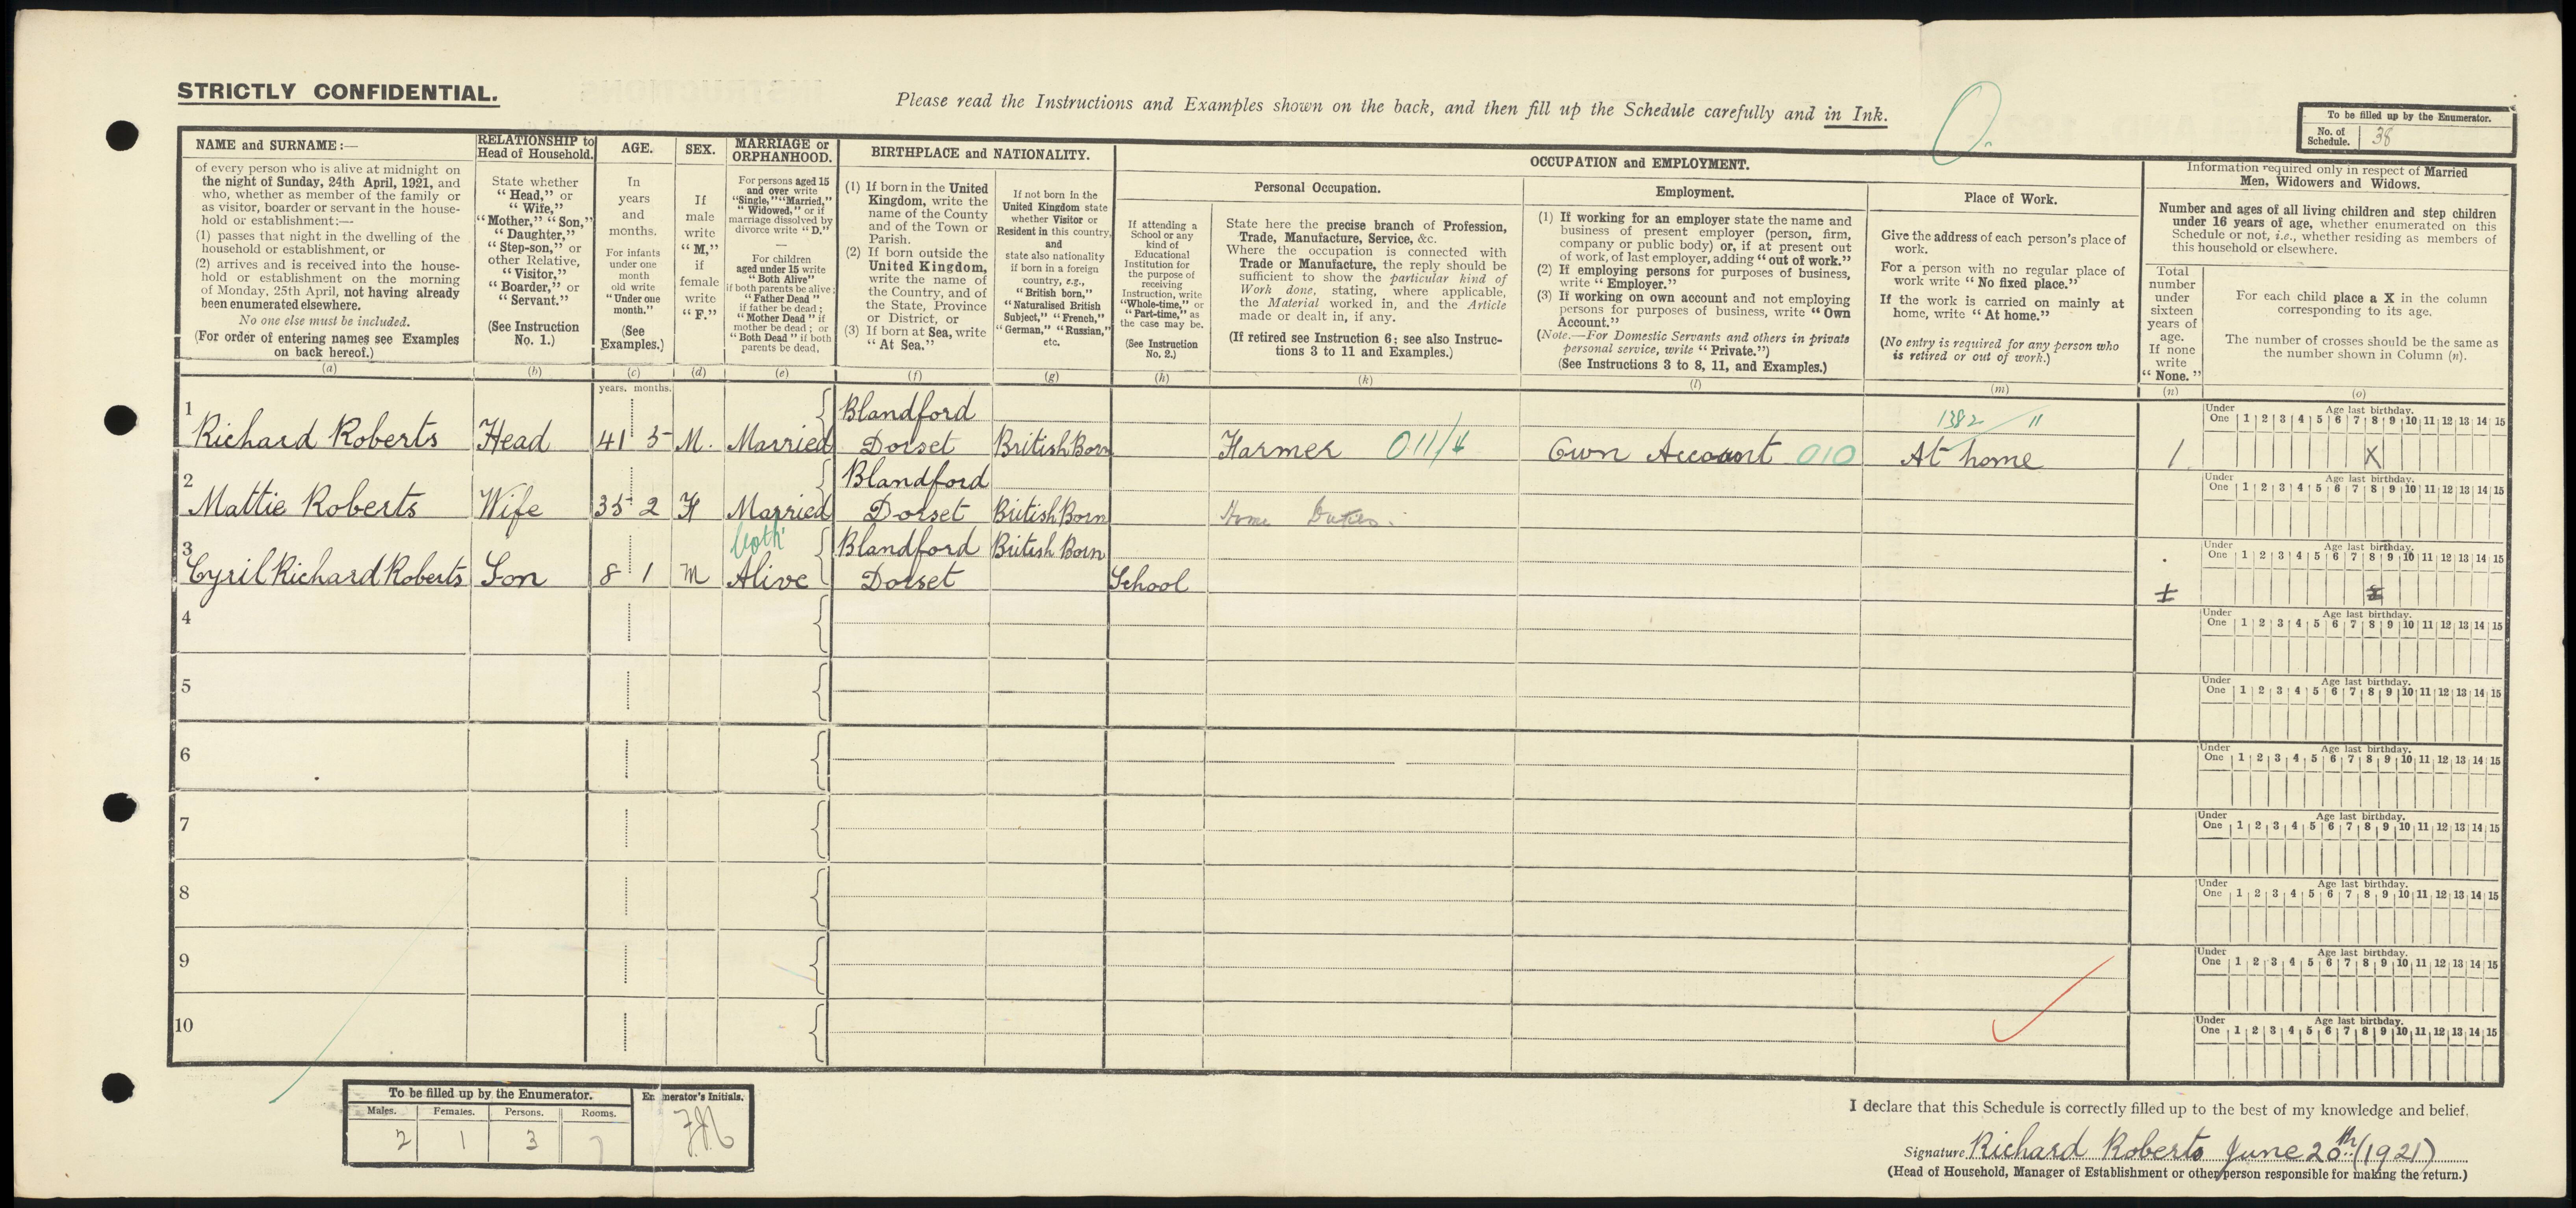 STRICTLY CONFIDENTIAL.
Please read the Instructions and Examples shown on the back, and then fill up the Schedule carefully and in Ink.
To be filled up by the Enumerator.
No. of Schedule. 38
NAME and SURNAME:—
of every person who is alive at midnight on
the night of Sunday, 24th April, 1921, and
who, whether as member of the family or
as visitor, boarder or servant in the house-
hold or establishment:—
(1) passes that night in the dwelling of the
household or establishment, or
(2) arrives and is received into the house-
hold or establishment on the morning
of Monday, 25th April, not having already
been enumerated elsewhere.
No one else must be included.
(For order of entering names see Examples
on back hereof.)
(a)
RELATIONSHIP to
Head of Household.
State whether
"Head," or
"Wife,"
"Mother," "Son,"
"Daughter,"
"Step-son," or
other Relative,
"Visitor,"
"Boarder," or
"Servant."
(See Instruction
No. 1.)
(b)
AGE.
In
years
and
months.
For infants
under one
month
old write
"Under one
month."
(See
Examples.)
(c)
SEX.
If
male
write
"M,"
if
female
write
"F."
(d)
MARRIAGE or
ORPHANHOOD.
For persons aged 15
and over write
"Single," "Married,"
"Widowed," or if
marriage dissolved by
divorce write "D."
—
For children
aged under 15 write
"Both Alive"
if both parents be alive;
"Father Dead"
if father be dead;
"Mother Dead" if
mother be dead; or
"Both Dead" if both
parents be dead.
(e)
BIRTHPLACE and NATIONALITY.
(1) If born in the United
Kingdom, write the
name of the County
and of the Town or
Parish.
(2) If born outside the
United Kingdom,
write the name of
the Country, and of
the State, Province
or District, or
(3) If born at Sea, write
"At Sea."
(f)
If not born in the
United Kingdom state
whether Visitor or
Resident in this country,
and
state also nationality
if born in a foreign
country, e.g.,
"British born,"
"Naturalised British
Subject," "French,"
"German," "Russian,"
etc.
(g)
OCCUPATION and EMPLOYMENT.
If attending a
School or any
kind of
Educational
Institution for
the purpose of
receiving
Instruction, write
"Whole-time," or
"Part-time," as
the case may be.
(See Instruction
No. 2.)
(h)
Personal Occupation.
State here the precise branch of Profession,
Trade, Manufacture, Service, &c.
Where the occupation is connected with
Trade or Manufacture, the reply should be
sufficient to show the particular kind of
Work done, stating, where applicable,
the Material worked in, and the Article
made or dealt in, if any.
(If retired see Instruction 6; see also Instruc-
tions 3 to 11 and Examples.)
(k)
Employment.
(1) If working for an employer state the name and
business of present employer (person, firm,
company or public body) or, if at present out
of work, of last employer, adding "out of work."
(2) If employing persons for purposes of business,
write "Employer."
(3) If working on own account and not employing
persons for purposes of business, write "Own
Account."
(Note.—For Domestic Servants and others in private
personal service, write "Private.")
(See Instructions 3 to 8, 11, and Examples.)
(l)
Place of Work.
Give the address of each person's place of
work.
For a person with no regular place of
work write "No fixed place."
If the work is carried on mainly at
home, write "At home."
(No entry is required for any person who
is retired or out of work.)
(m)
Information required only in respect of Married
Men, Widowers and Widows.
Number and ages of all living children and step children
under 16 years of age, whether enumerated on this
Schedule or not, i.e., whether residing as members of
this household or elsewhere.
Total
number
under
sixteen
years of
age.
If none
write
"None."
(n)
For each child place a X in the column
corresponding to its age.
The number of crosses should be the same as
the number shown in Column (n).
(o)
years. months.
1 Richard Roberts Head 41 5 M. Married Blandford Dorset British Born Farmer 011/ Own Account 010 At home 1382/11 1 X
Under One 1 2 3 4 5 6 7 8 9 10 11 12 13 14 15 Age last birthday.
2 Mattie Roberts Wife 35 2 F Married Blandford Dorset British Born Home Duties.
Under One 1 2 3 4 5 6 7 8 9 10 11 12 13 14 15 Age last birthday.
3 Cyril Richard Roberts Son 8 1 M both Alive Blandford Dorset British Born School
Under One 1 2 3 4 5 6 7 8 9 10 11 12 13 14 15 Age last birthday.
4
Under One 1 2 3 4 5 6 7 8 9 10 11 12 13 14 15 Age last birthday.
5
Under One 1 2 3 4 5 6 7 8 9 10 11 12 13 14 15 Age last birthday.
6
Under One 1 2 3 4 5 6 7 8 9 10 11 12 13 14 15 Age last birthday.
7
Under One 1 2 3 4 5 6 7 8 9 10 11 12 13 14 15 Age last birthday.
8
Under One 1 2 3 4 5 6 7 8 9 10 11 12 13 14 15 Age last birthday.
9
Under One 1 2 3 4 5 6 7 8 9 10 11 12 13 14 15 Age last birthday.
10
Under One 1 2 3 4 5 6 7 8 9 10 11 12 13 14 15 Age last birthday.
To be filled up by the Enumerator.
Males. Females. Persons. Rooms.
2 1 3 7
Enumerator's Initials.
I declare that this Schedule is correctly filled up to the best of my knowledge and belief.
Signature Richard Roberts June 20th (1921)
(Head of Household, Manager of Establishment or other person responsible for making the return.)